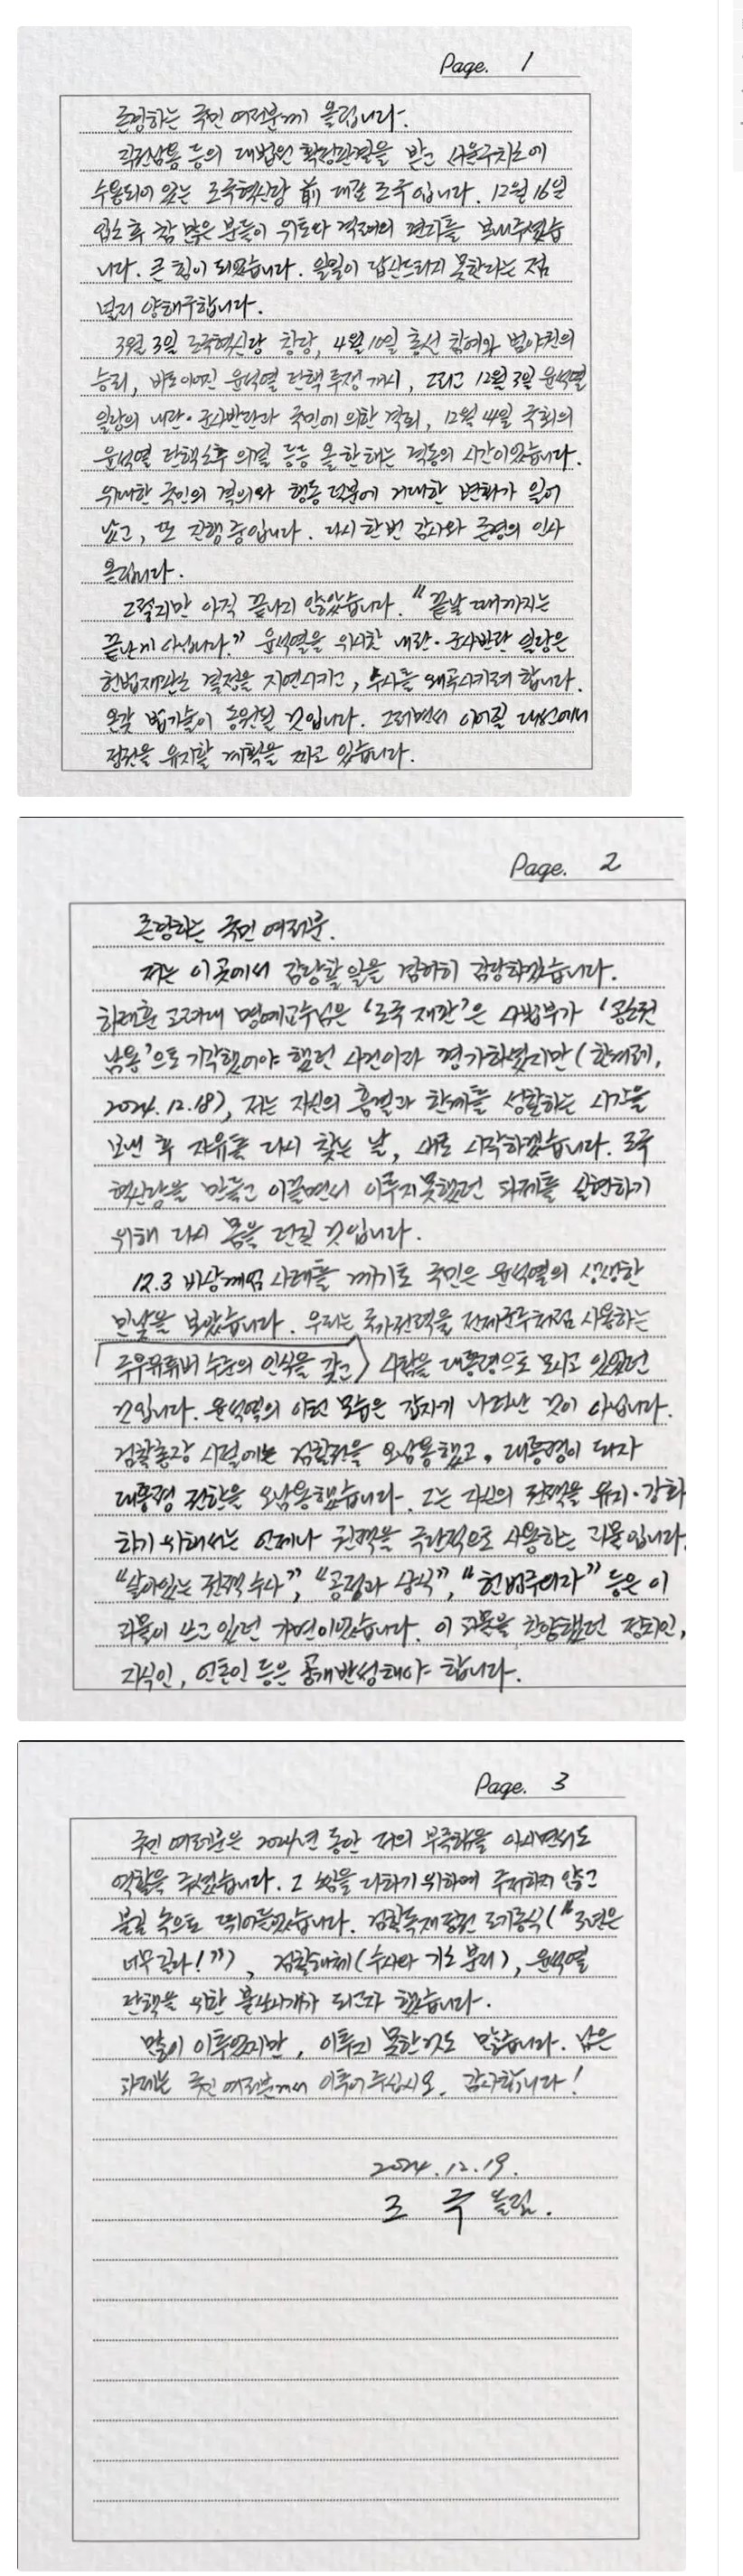 Page. 1
존경하는 국민 여러분께 올립니다.
직권남용 등의 대법원 확정판결을 받고 서울구치소에
수용되어 있는 조국혁신당 前 대표 조국입니다. 12월 16일
입소 후 참 많은 분들이 위로와 격려의 편지를 보내주셨습
니다. 큰 힘이 되었습니다. 일일이 답신드리지 못한다는 점
널리 양해구합니다.
3월 3일 조국혁신당 창당, 4월 10일 총선 참여와 범야권의
승리, 바로 이어진 윤석열 탄핵 투쟁 개시, 그리고 12월 3일 윤석열
일당의 내란·군사반란과 국민에 의한 격퇴, 12월 14일 국회의
윤석열 탄핵소추 의결 등등 올 한해는 격동의 시간이었습니다.
위대한 국민의 결의와 행동 덕분에 거대한 변화가 일어
났고, 또 진행 중입니다. 다시 한번 감사와 존경의 인사
올립니다.
그렇지만 아직 끝나지 않았습니다. “끝날 때까지는
끝난게 아닙니다.” 윤석열을 위시한 내란·군사반란 일당은
헌법재판소 결정을 지연시키고, 수사를 왜곡시키려 합니다.
온갖 법기술이 동원될 것입니다. 그러면서 이어질 대선에서
정권을 유지할 계획을 짜고 있습니다.
Page. 2
존경하는 국민 여러분.
저는 이곳에서 감당할 일을 겸허히 감당하겠습니다.
하태훈 고려대 명예교수님은 ‘조국 재판’은 사법부가 ‘공소권
남용’으로 기각했어야 했던 사건이라 평가하셨지만(한겨레,
2024. 12. 18), 저는 자신의 흠결과 한계를 성찰하는 시간을
보낸 후 자유를 다시 찾는 날, 새로 시작하겠습니다. 조국
혁신당을 만들고 이끌면서 이루지 못했던 과제를 실현하기
위해 다시 몸을 던질 것입니다.
12.3 비상계엄 사태를 계기로 국민은 윤석열의 생생한
민낯을 보았습니다. 우리는 국가권력을 전제군주처럼 사용하는
극우유튜버 수준의 인식을 갖고 사람을 대통령으로 모시고 있었던
것입니다. 윤석열의 이런 모습은 갑자기 나타난 것이 아닙니다.
검찰총장 시절에는 검찰권을 오남용했고, 대통령이 되자
대통령 권한을 오남용했습니다. 그는 자신의 권력을 유지·강화
하기 위해서는 언제나 권력을 극단적으로 사용하는 괴물입니다.
“살아있는 권력 수사”, “공정과 상식”, “헌법주의자” 등은 이
괴물이 쓰고 있던 가면이었습니다. 이 괴물을 찬양했던 정치인,
지식인, 언론인 등은 공개반성해야 합니다.
Page. 3
국민 여러분은 2024년 동안 저의 부족함을 아시면서도
역할을 주셨습니다. 그 소임을 다하기 위하여 주저하지 않고
불길 속으로 뛰어들었습니다. 검찰독재정권 조기종식(“3년은
너무 길다!”), 검찰해체(수사와 기소 분리), 윤석열
탄핵을 위한 불쏘시개가 되고자 했습니다.
많이 이루었지만, 이루지 못한 것도 많습니다. 남은
과제는 국민 여러분께서 이루어 주십시오. 감사합니다!
2024. 12. 19.
조 국 올림.